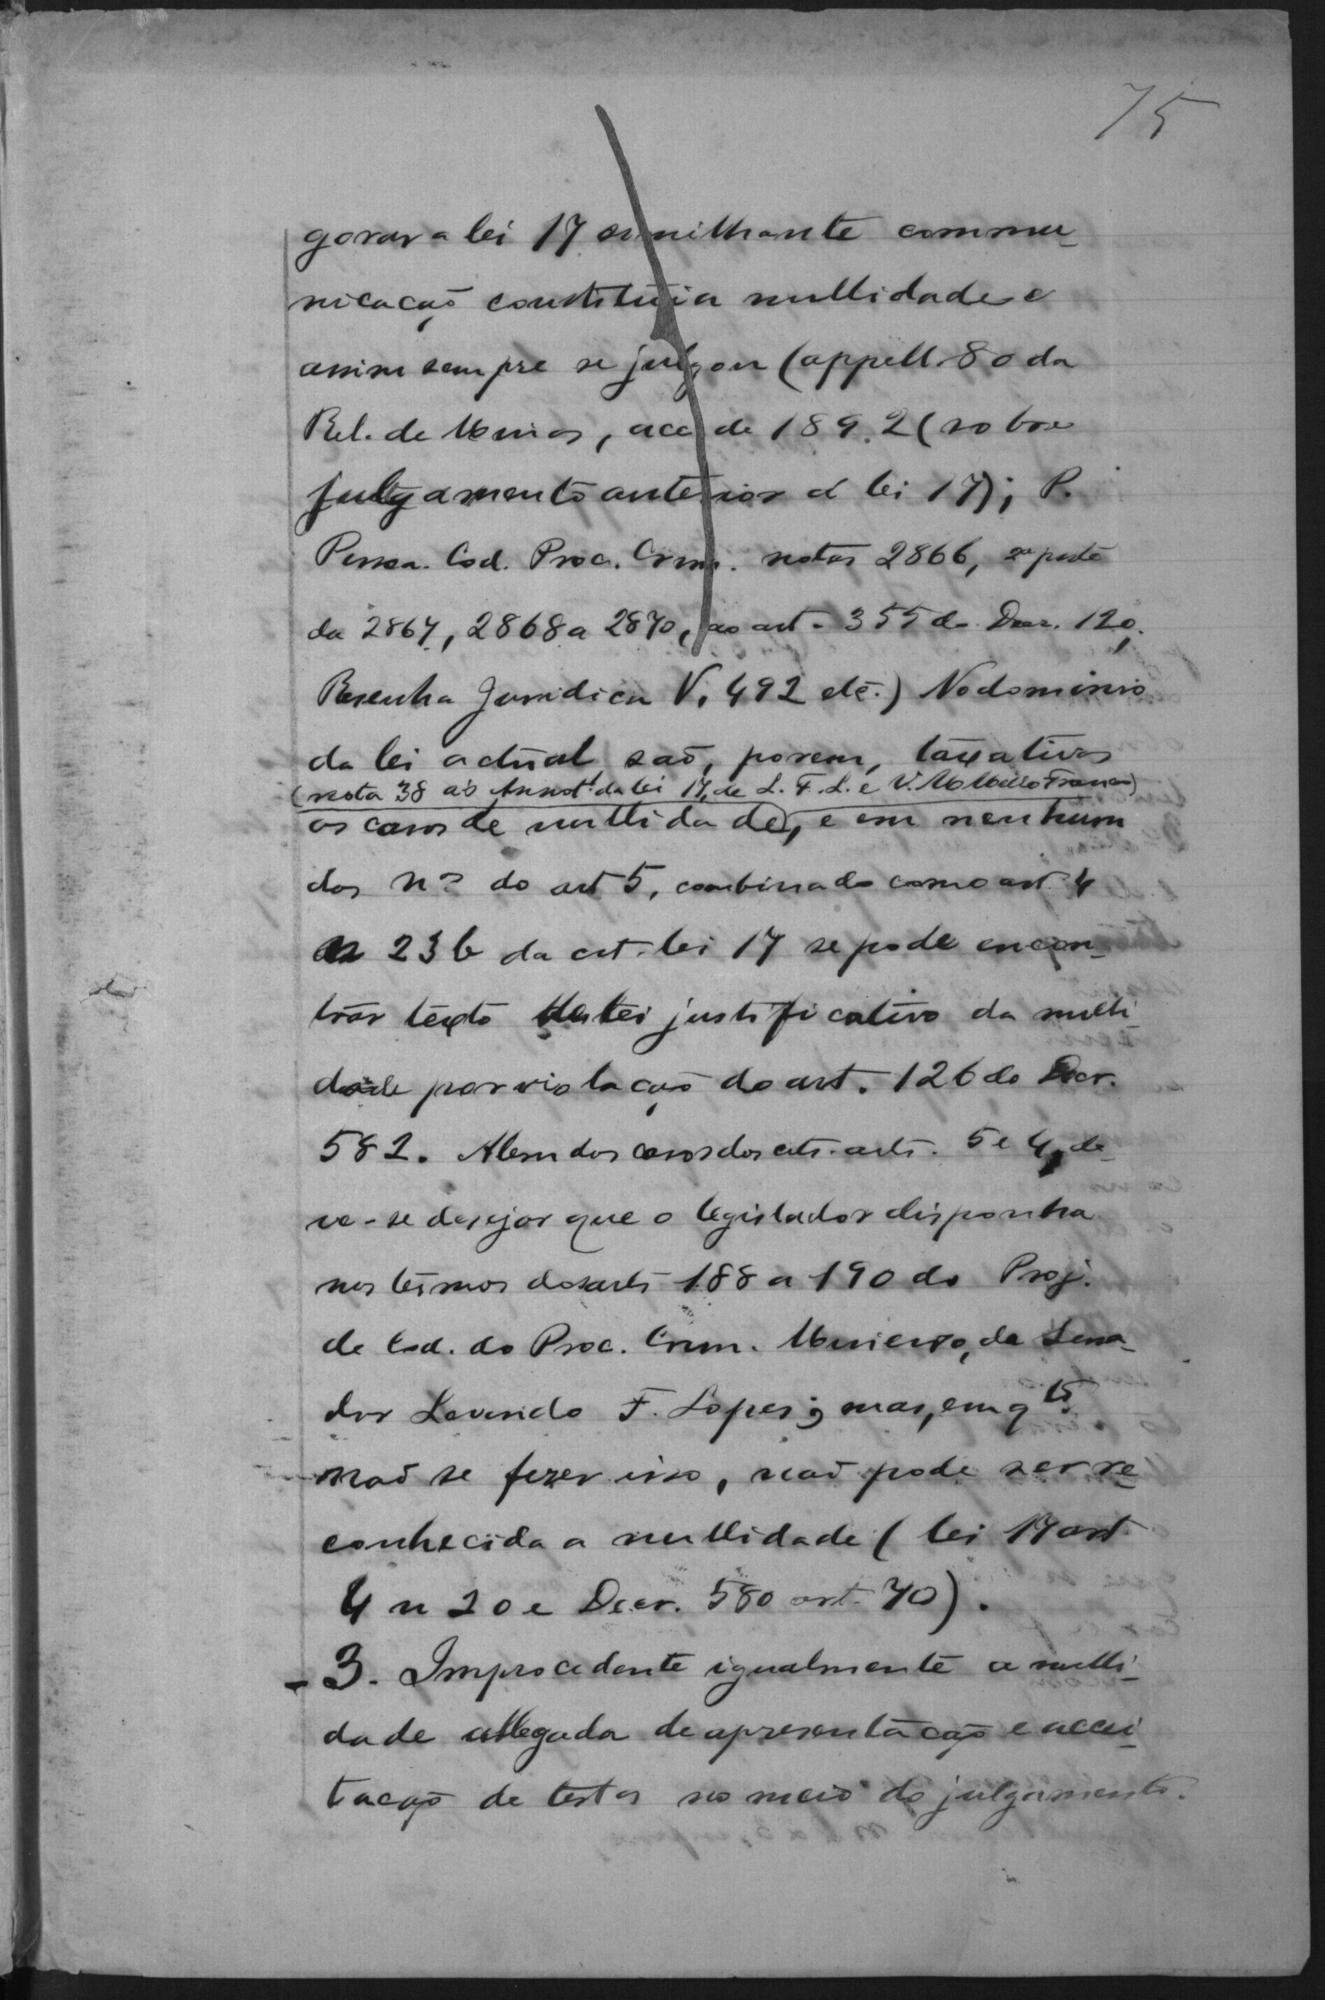 75
gorar a lei 17 similhante commu-
nicação constituia nullidade e
assim sempre se julgou (appell. 80 da
Rel. de Minas, acc de 1892 (sobre
julgamento anterior á lei 17); P.
Pessoa. Cod. Proc. Crim. notas 2866, 2ª parte
da 2867, 2868 a 2870, ao art. 355 do Decr. 120,
Resenha Juridica V. 492 etc.) No dominio
da lei actual são, porem, taxativos
(nota 38 ás Annot. da lei 17, de L. F. L. e V. Mello Franco)
os casos de nullidade, e em nenhum
dos nos do art 5, combinado com o art. 4
n 23 b da cit. lei 17 se pode encon-
trar texto de lei justificativo da nulli-
dade por violação do art. 126 do Decr.
582. Alem dos casos dos cits. arts. 5 e 4, de-
ve-se desejar que o legislador disponha
nos termos dos arts 188 a 190 do Proj.
de Cod. do Proc. Crim. Mineiro, do Sena-
dor Levindo F. Lopes; mas, emqto
não se fezer isso, não pode ser re-
conhecida a nullidade (lei 17 art
4 n 20 e Decr. 580 art. 70).
- 3. Improcedente igualmente a nulli-
dade allegada de apresentação e accei-
tação de testas no meio do julgamento.